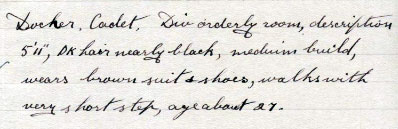 Docker, Cadet, Div orderly room, description
5'11", DK hair nearly black, medium build,
wears brown suit & shoes, walks with
very short step, age about 27.